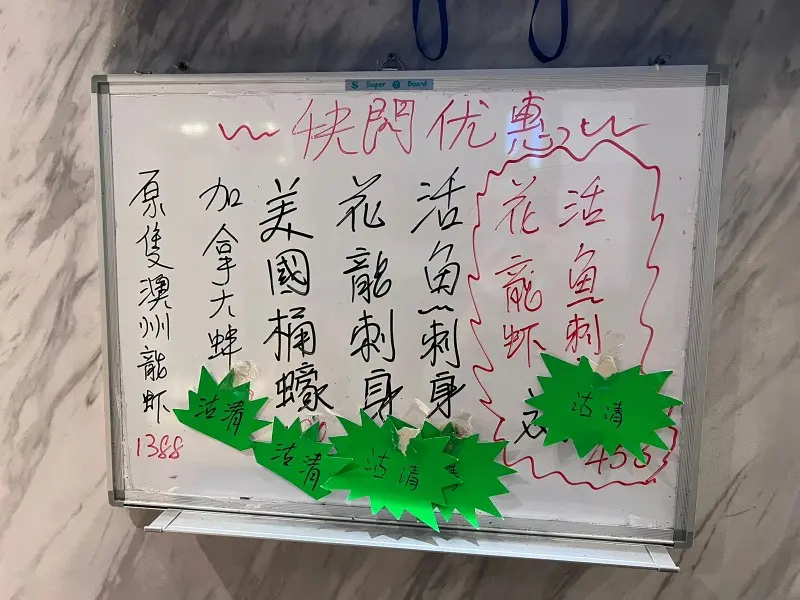 S Super Board
快閃优惠
活魚刺
花龍虾
458
沽清
活魚刺身
花龍刺身
沽清
美國桶蠔
沽清
加拿大蚌
沽清
原隻澳州龍虾
1388